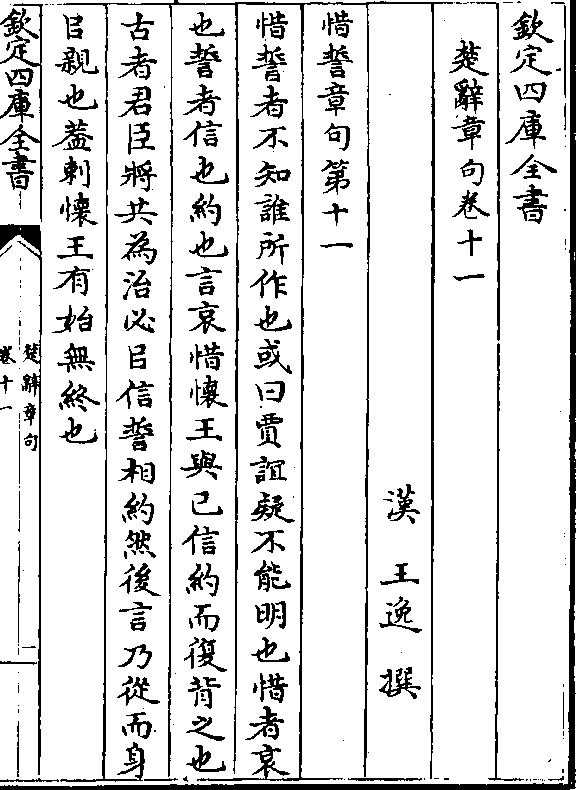 欽定四庫全書
楚辭章句卷十一
漢 王逸 撰
惜誓章句第十一
惜誓者不知誰所作也或曰賈誼疑不能明也惜者哀
也誓者信也約也言哀惜懷王與已信約而復背之也
古者君臣將共為治必㠯信誓相約然後言乃從而身
㠯親也葢刺懷王有始無終也
欽定四庫全書
楚辭章句
卷十一
一